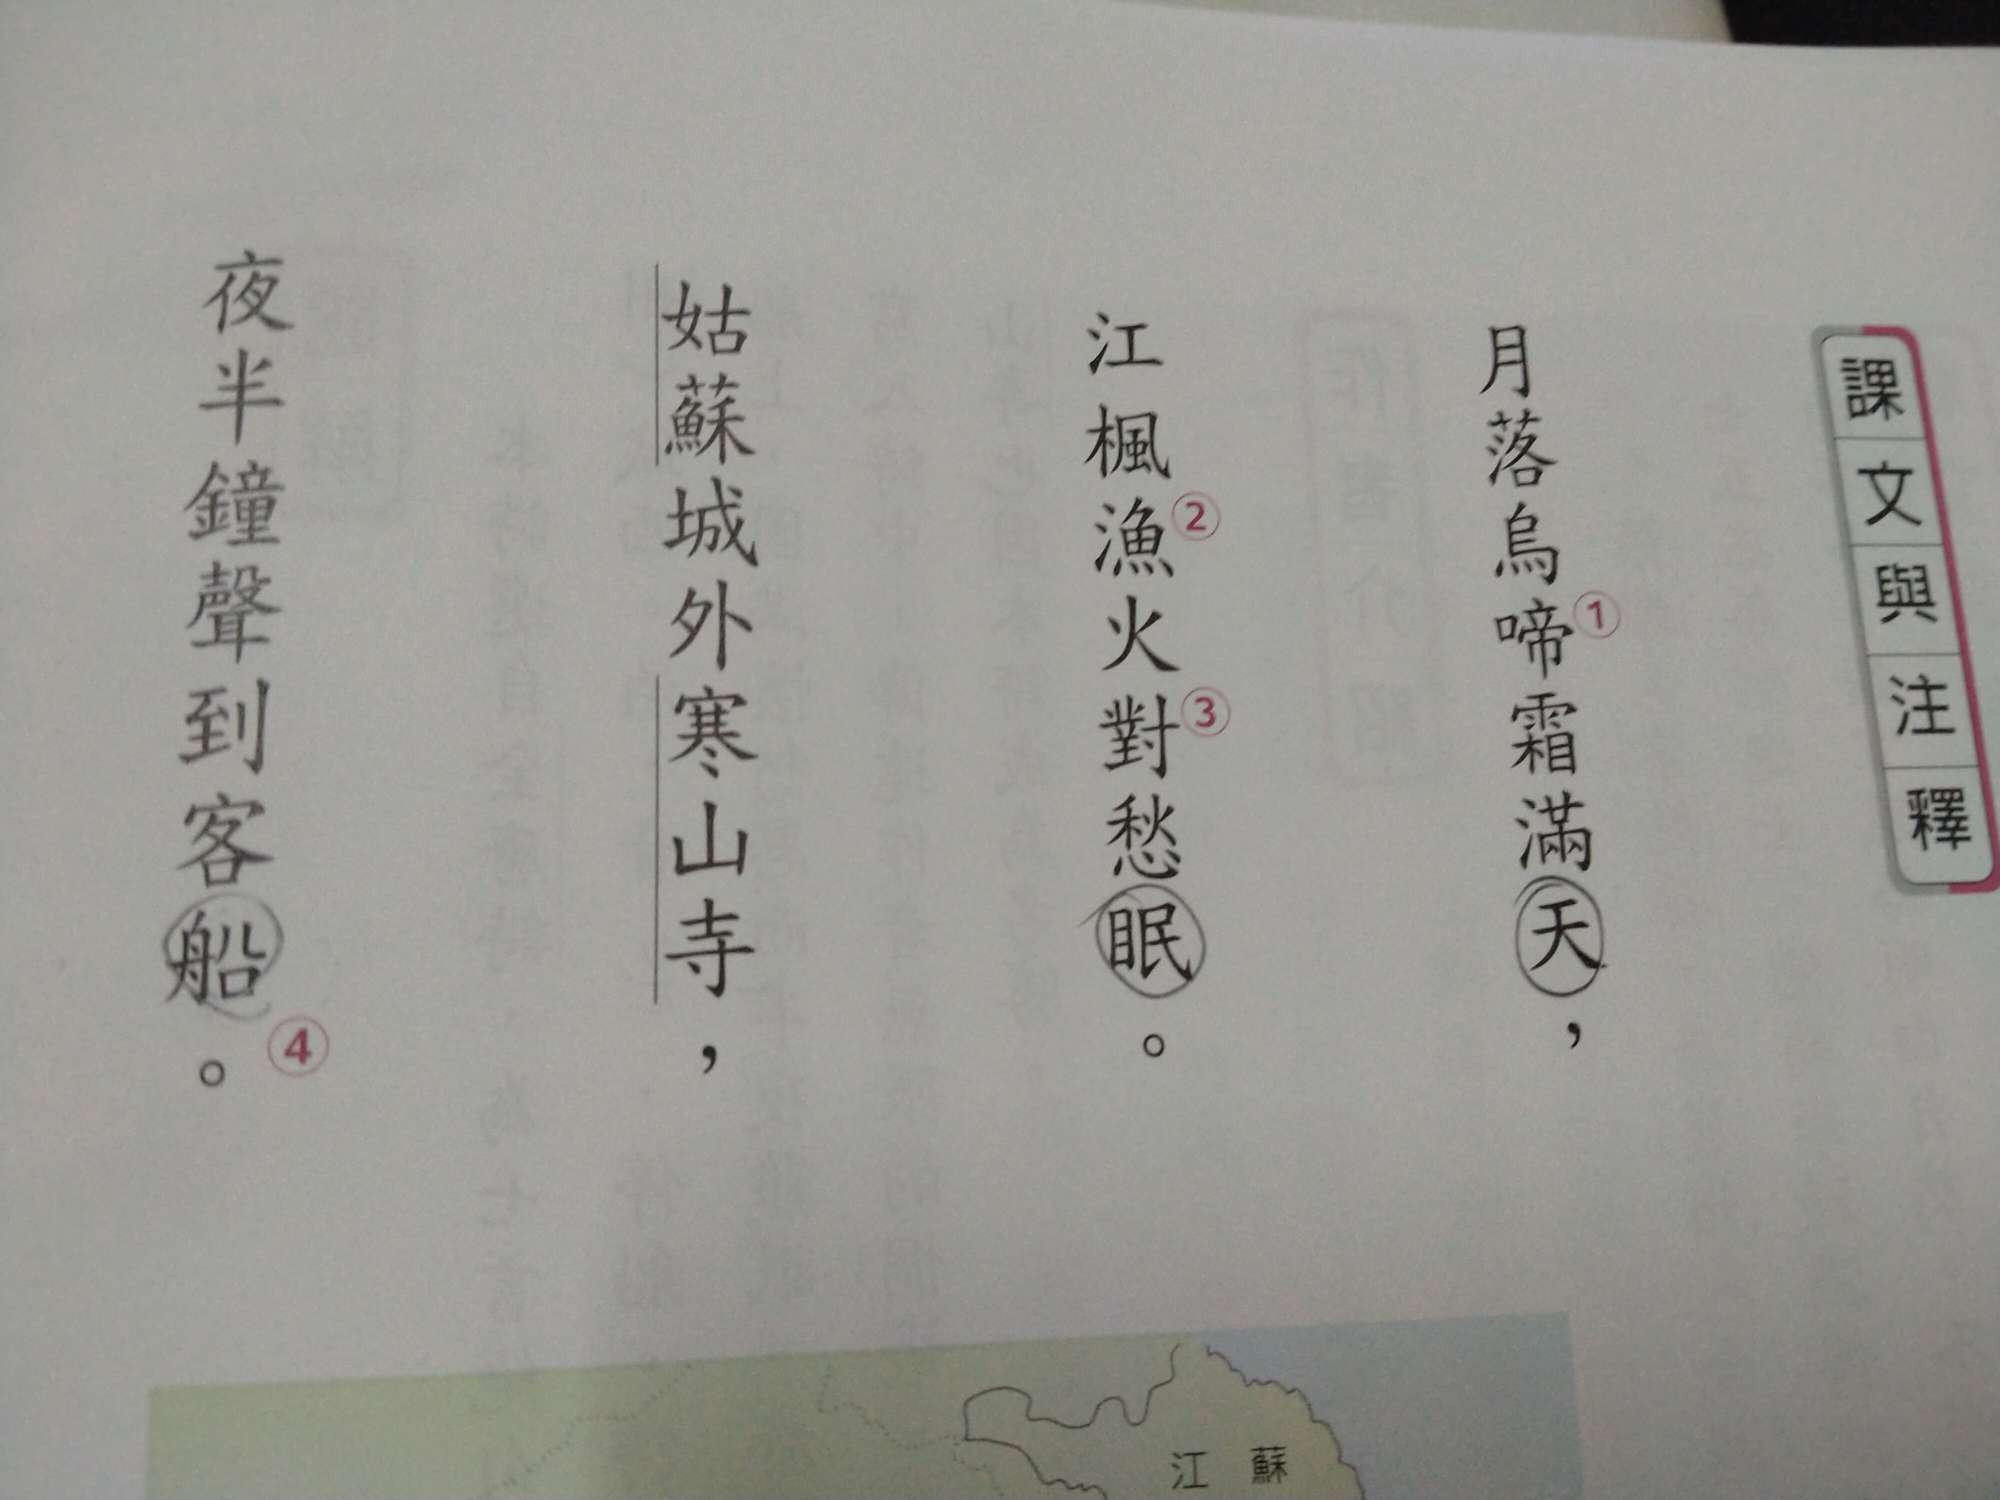 課文與注釋
月落烏啼①霜滿天，
江楓漁②火對③愁眠。
姑蘇城外寒山寺，
夜半鐘聲到客船④。
江蘇